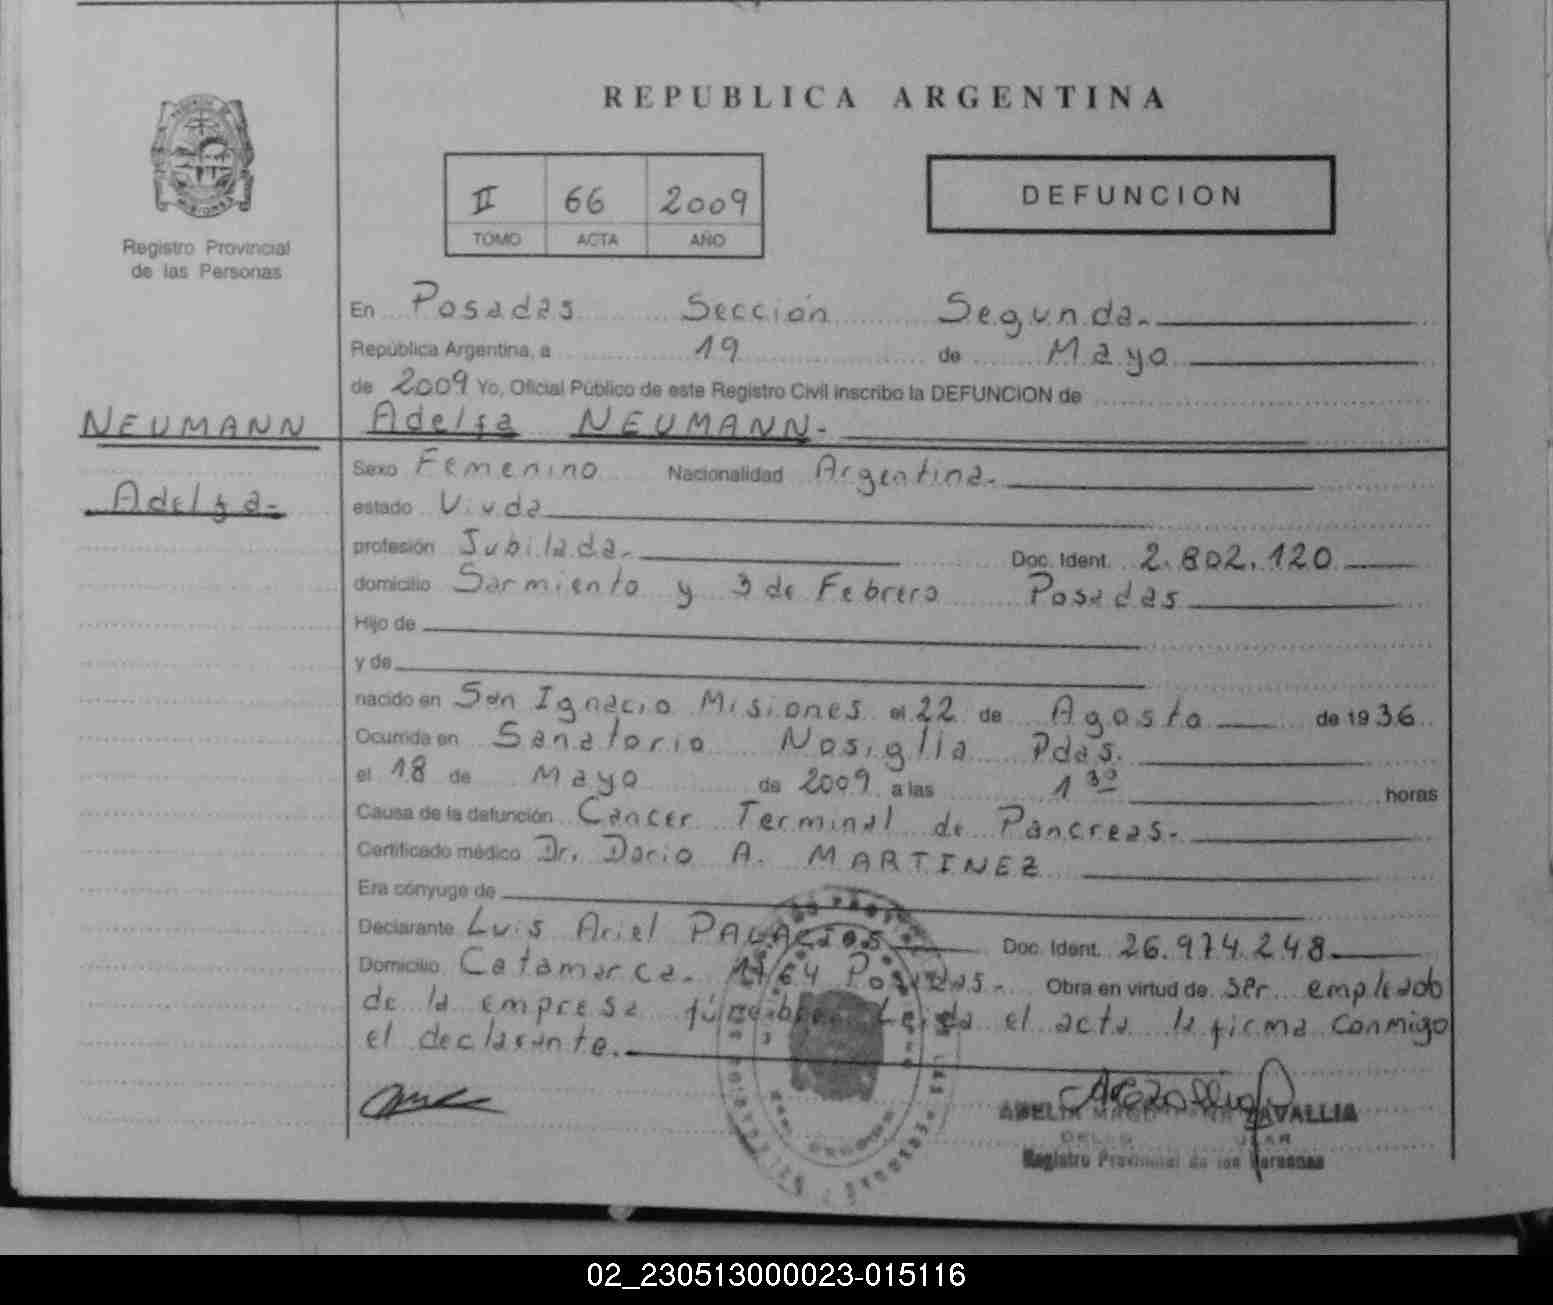 REPUBLICA ARGENTINA
II 66 2009
TOMO ACTA AÑO
DEFUNCION
Registro Provincial
de las Personas
En Posadas Sección Segunda.
República Argentina, a 19 de Mayo
de 2009 Yo, Oficial Público de este Registro Civil inscribo la DEFUNCION de
NEUMANN Adelfa NEUMANN.
Adelfa.
Sexo Femenino Nacionalidad Argentina.
estado Viuda
profesión Jubilada. Doc. Ident. 2.802.120
domicilio Sarmiento y 3 de Febrero Posadas
Hijo de
y de
nacido en San Ignacio Misiones el 22 de Agosto de 1936
Ocurrida en Sanatorio Nosiglia Pdas.
el 18 de Mayo de 2009 a las 1 30 horas
Causa de la defunción Cancer Terminal de Páncreas.
Certificado médico Dr. Dario A. MARTINEZ
Era cónyuge de
Declarante Luis Ariel PALACIOS Doc. Ident. 26.974.248
Domicilio Catamarca. Posadas. Obra en virtud de ser empleado
de la empresa fúnebre. Leida el acta la firma conmigo
el declarante.
ZAVALLIA
Registro Provincial de las Personas
02_230513000023-015116